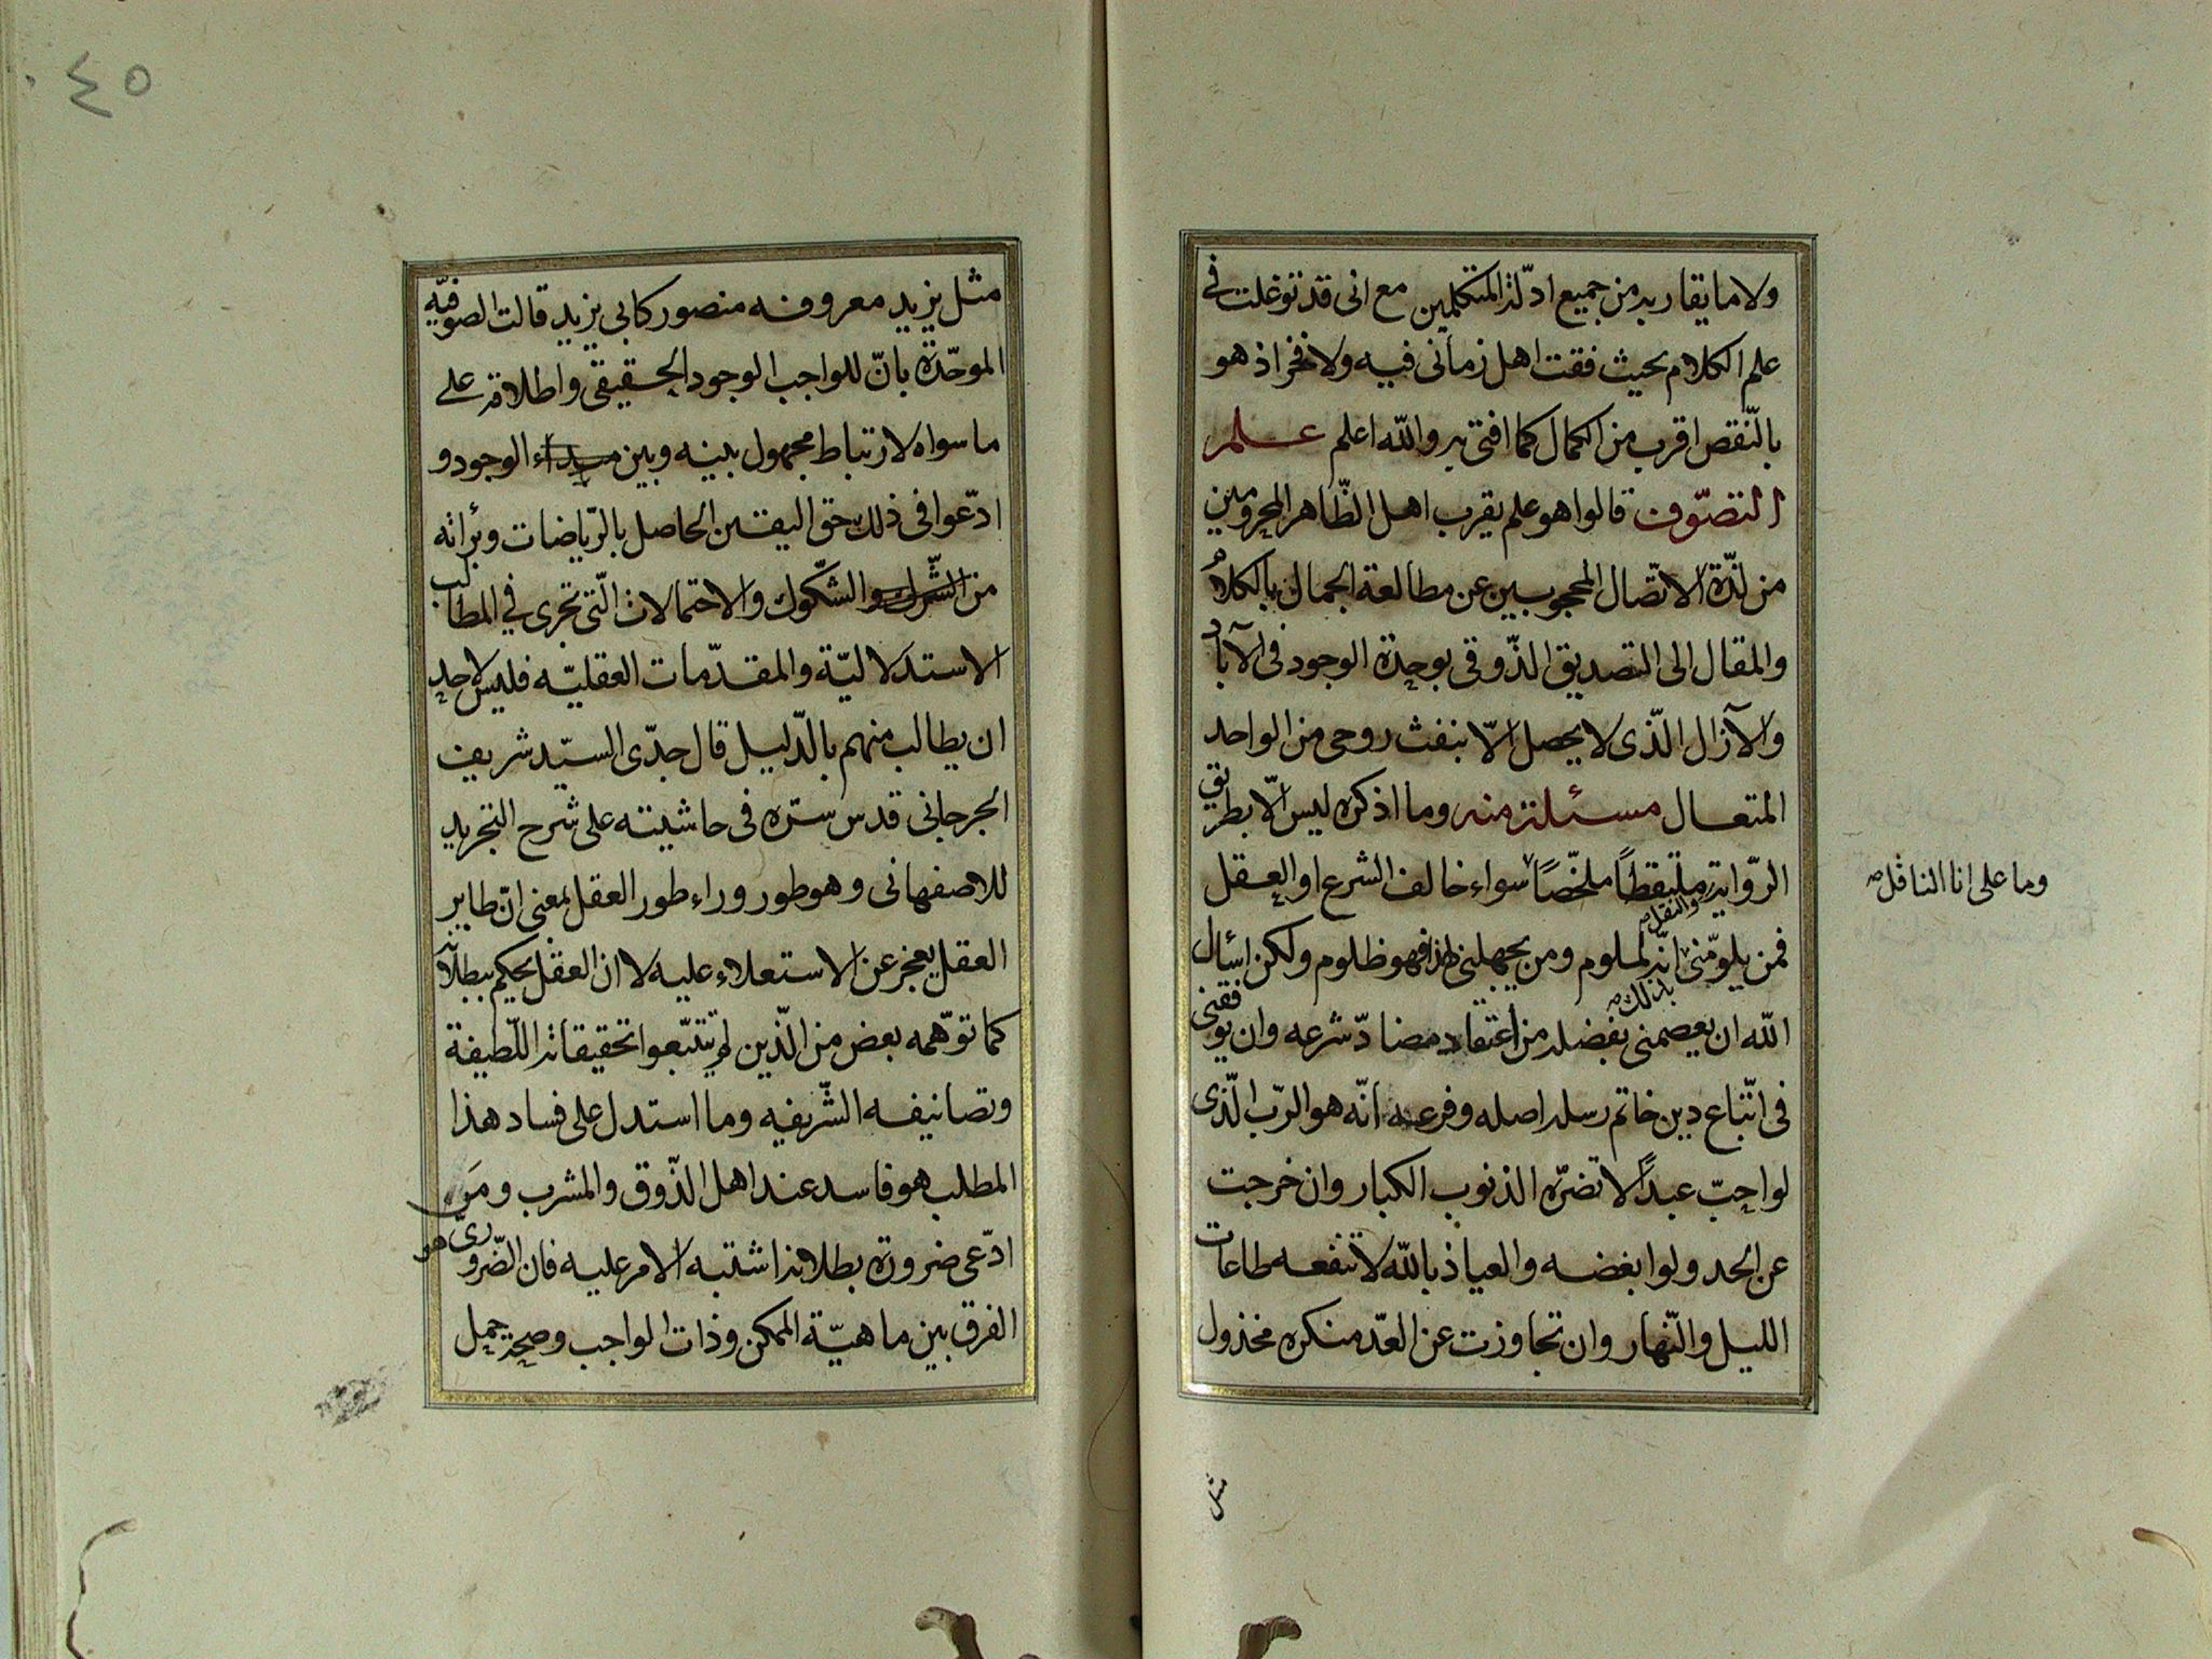 ولا ما يقاربه من جميع ادلّة المتكلمين مع انى قد توغلت فى
علم الكلام بحيث فقت اهل زمانى فيه ولا فخر اذ هو
بالنّقص اقرب من الكمال كما افتى به والله اعلم علم
التصوّف قالوا هو علم يقرب اهل الظّاهر المحرومين
من لذّة الاتّصال المحجوبين عن مطالعة الجمال بالكلام
والمقال الى التصديق الذّوقى بوحدة الوجود فى الآباد
والآزال الّذى لا يحصل الّا بنفث روحى من الواحد
المتعال مسئلة منه وما اذكره ليس الّا بطريق
الرّواية ملتقطًا ملخّصًا سواء خالف الشرع او العقل
والنقل صح
وما على انا الناقل صح
فمن يلومّنى انّه لملوم ومن يجهلنى لهذا فهو ظلوم ولكن اسأل
بذلك صح
الله ان يعصمنى بفضله من اعتقاد مضادّ شرعه وان يوفقنى
فى اتّباع دين خاتم رسله اصله وفرعه انّه هو الربّ الّذى
لو احبّ عبدًا لا تضرّه الذنوب الكبار وان خرجت
عن الحد ولو ابغضه والعياذ بالله لا تنفعه طاعات
الليل والنّهار وان تجاوزت عن العدّ منكره مخذول
مثل
٤٥
مثل يزيد معروفه منصور كابى يزيد قالت الصوفيّه
الموحّدة بانّ للواجب الوجود الحقيقى واطلاقه على
ما سواه لارتباط مجهول بينه وبين مبداء الوجود و
ادّعوا فى ذلك حق اليقين الحاصل بالرّياضات وبرائه
من الشّرك والشكوك والاحتمالات الّتى تجرى فى المطالب
الاستدلاليّة والمقدّمات العقليّه فليس لاحد
ان يطالب منهم بالدّليل قال جدّى السيّد شريف
الجرجانى قدس سرّه فى حاشيته على شرح التجريد
للاصفهانى وهو طور وراء طور العقل بمعنى انّ طاير
العقل يعجز عن الاستعلاء عليه لا ان العقل يحكم ببطلانه
كما توهّمه بعض من الّذين لم يتتبّعوا تحقيقاته اللّطيفة
وتصانيفه الشّريفه وما استدل على فساد هذا
المطلب هو فاسد عند اهل الذّوق والمشرب ومَن
ادّعى ضرورة بطلانه اشتبه الامر عليه فان الضّرورى هو
الفرق بين ماهيّة الممكن وذات الواجب وصحة حمل